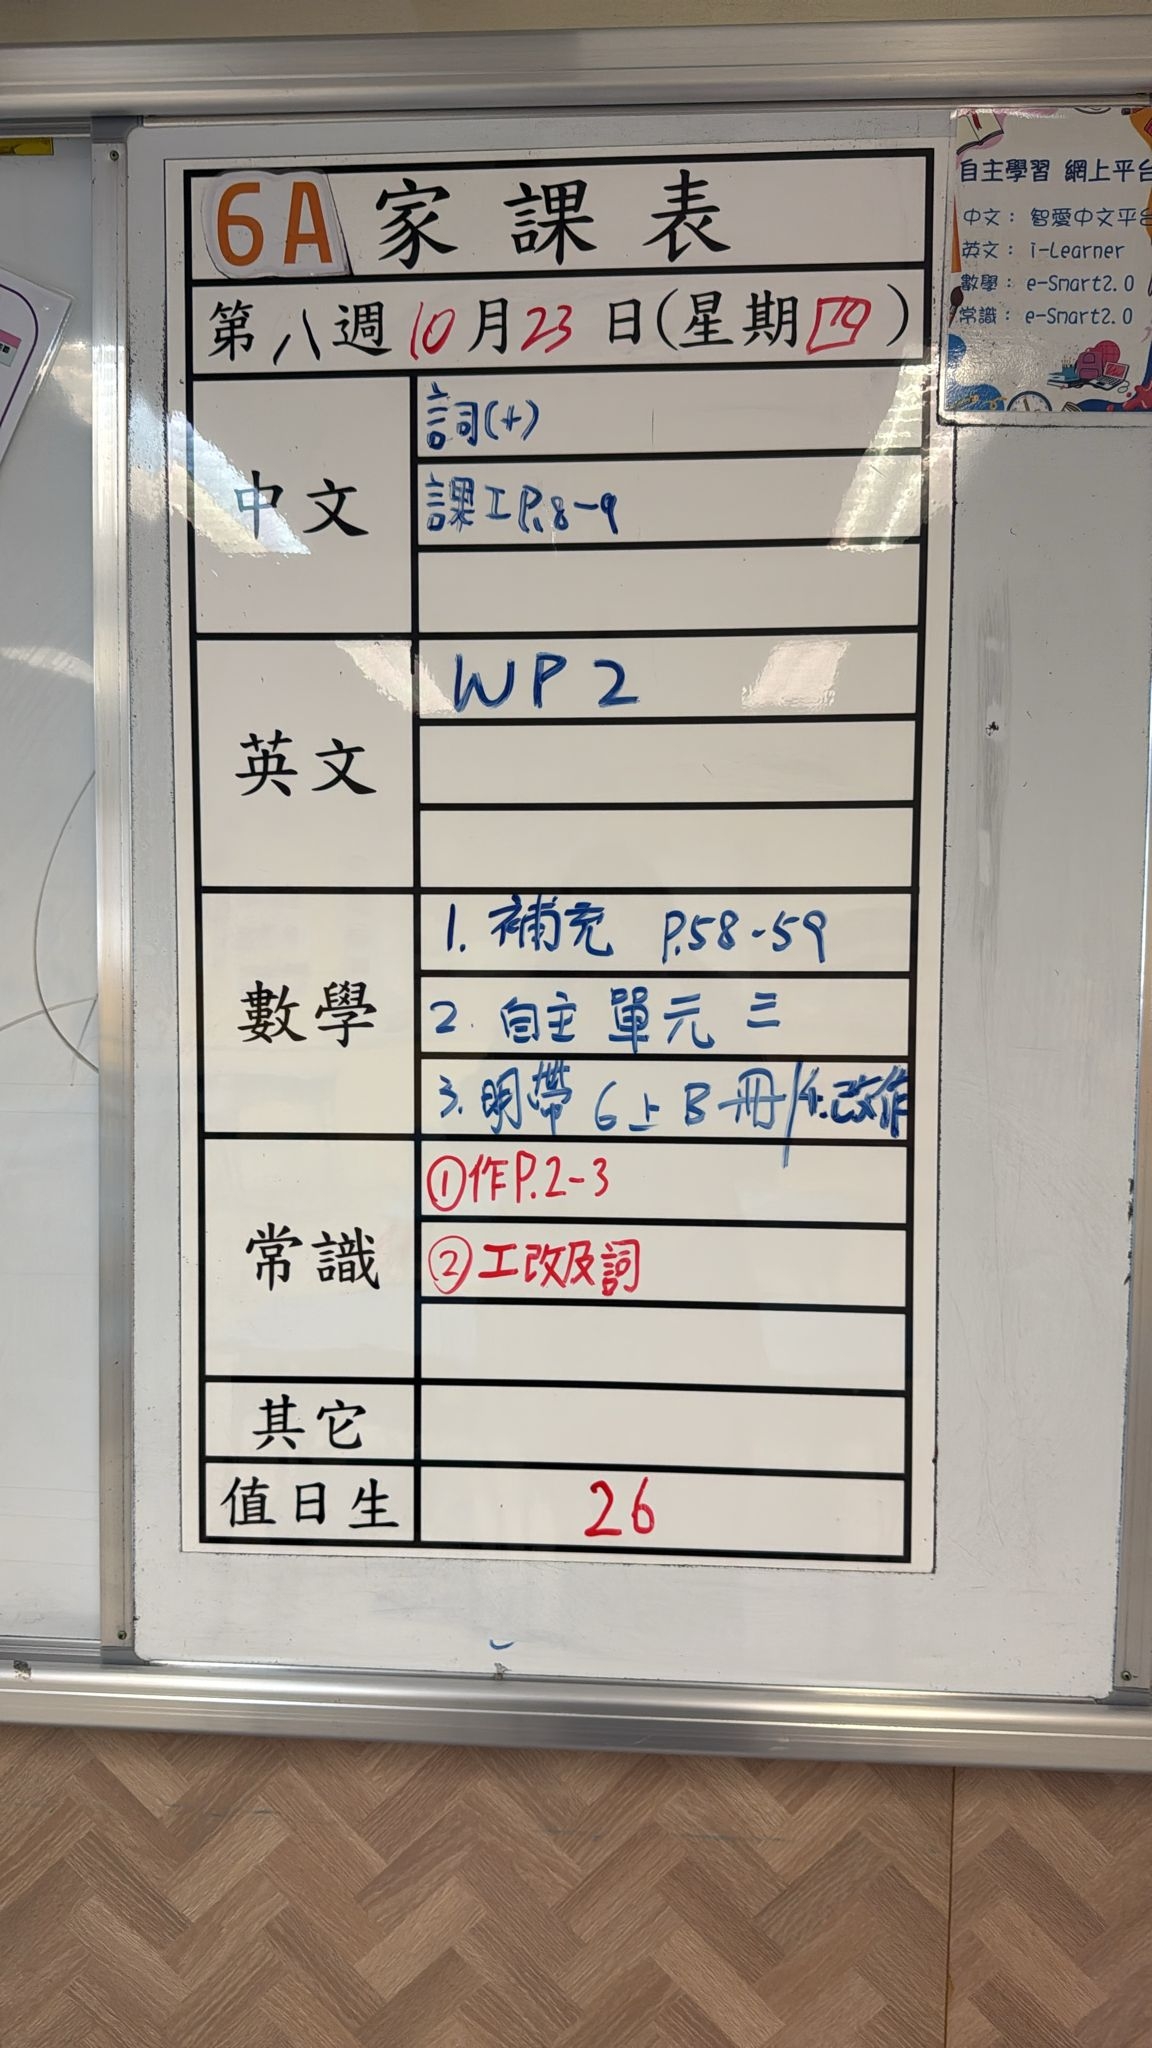 6A 家課表
第八週10月23日(星期四)
中文
詞(十)
課工P.8-9
英文
WP2
數學
1. 補充 P.58-59
2. 自主 單元 三
3. 明帶 6上B冊/4.改作
常識
①作P.2-3
②工改及詞
其它
值日生
26
自主學習 網上平台
中文：智愛中文平台
英文：i-Learner
數學：e-Smart2.0
常識：e-Smart2.0